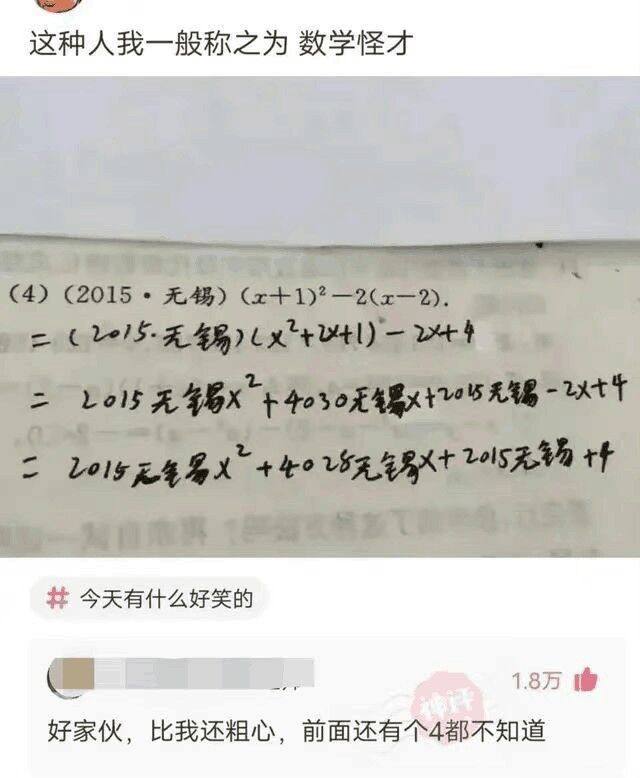 这种人我一般称之为 数学怪才
(4)(2015·无锡)(x+1)²-2(x-2).
=(2015·无锡)(x²+2x+1)-2x+4
= 2015无锡x²+4030无锡x+2015无锡-2x+4
= 2015无锡x²+4028无锡x+2015无锡+4
# 今天有什么好笑的
1.8万
神评
好家伙，比我还粗心，前面还有个4都不知道